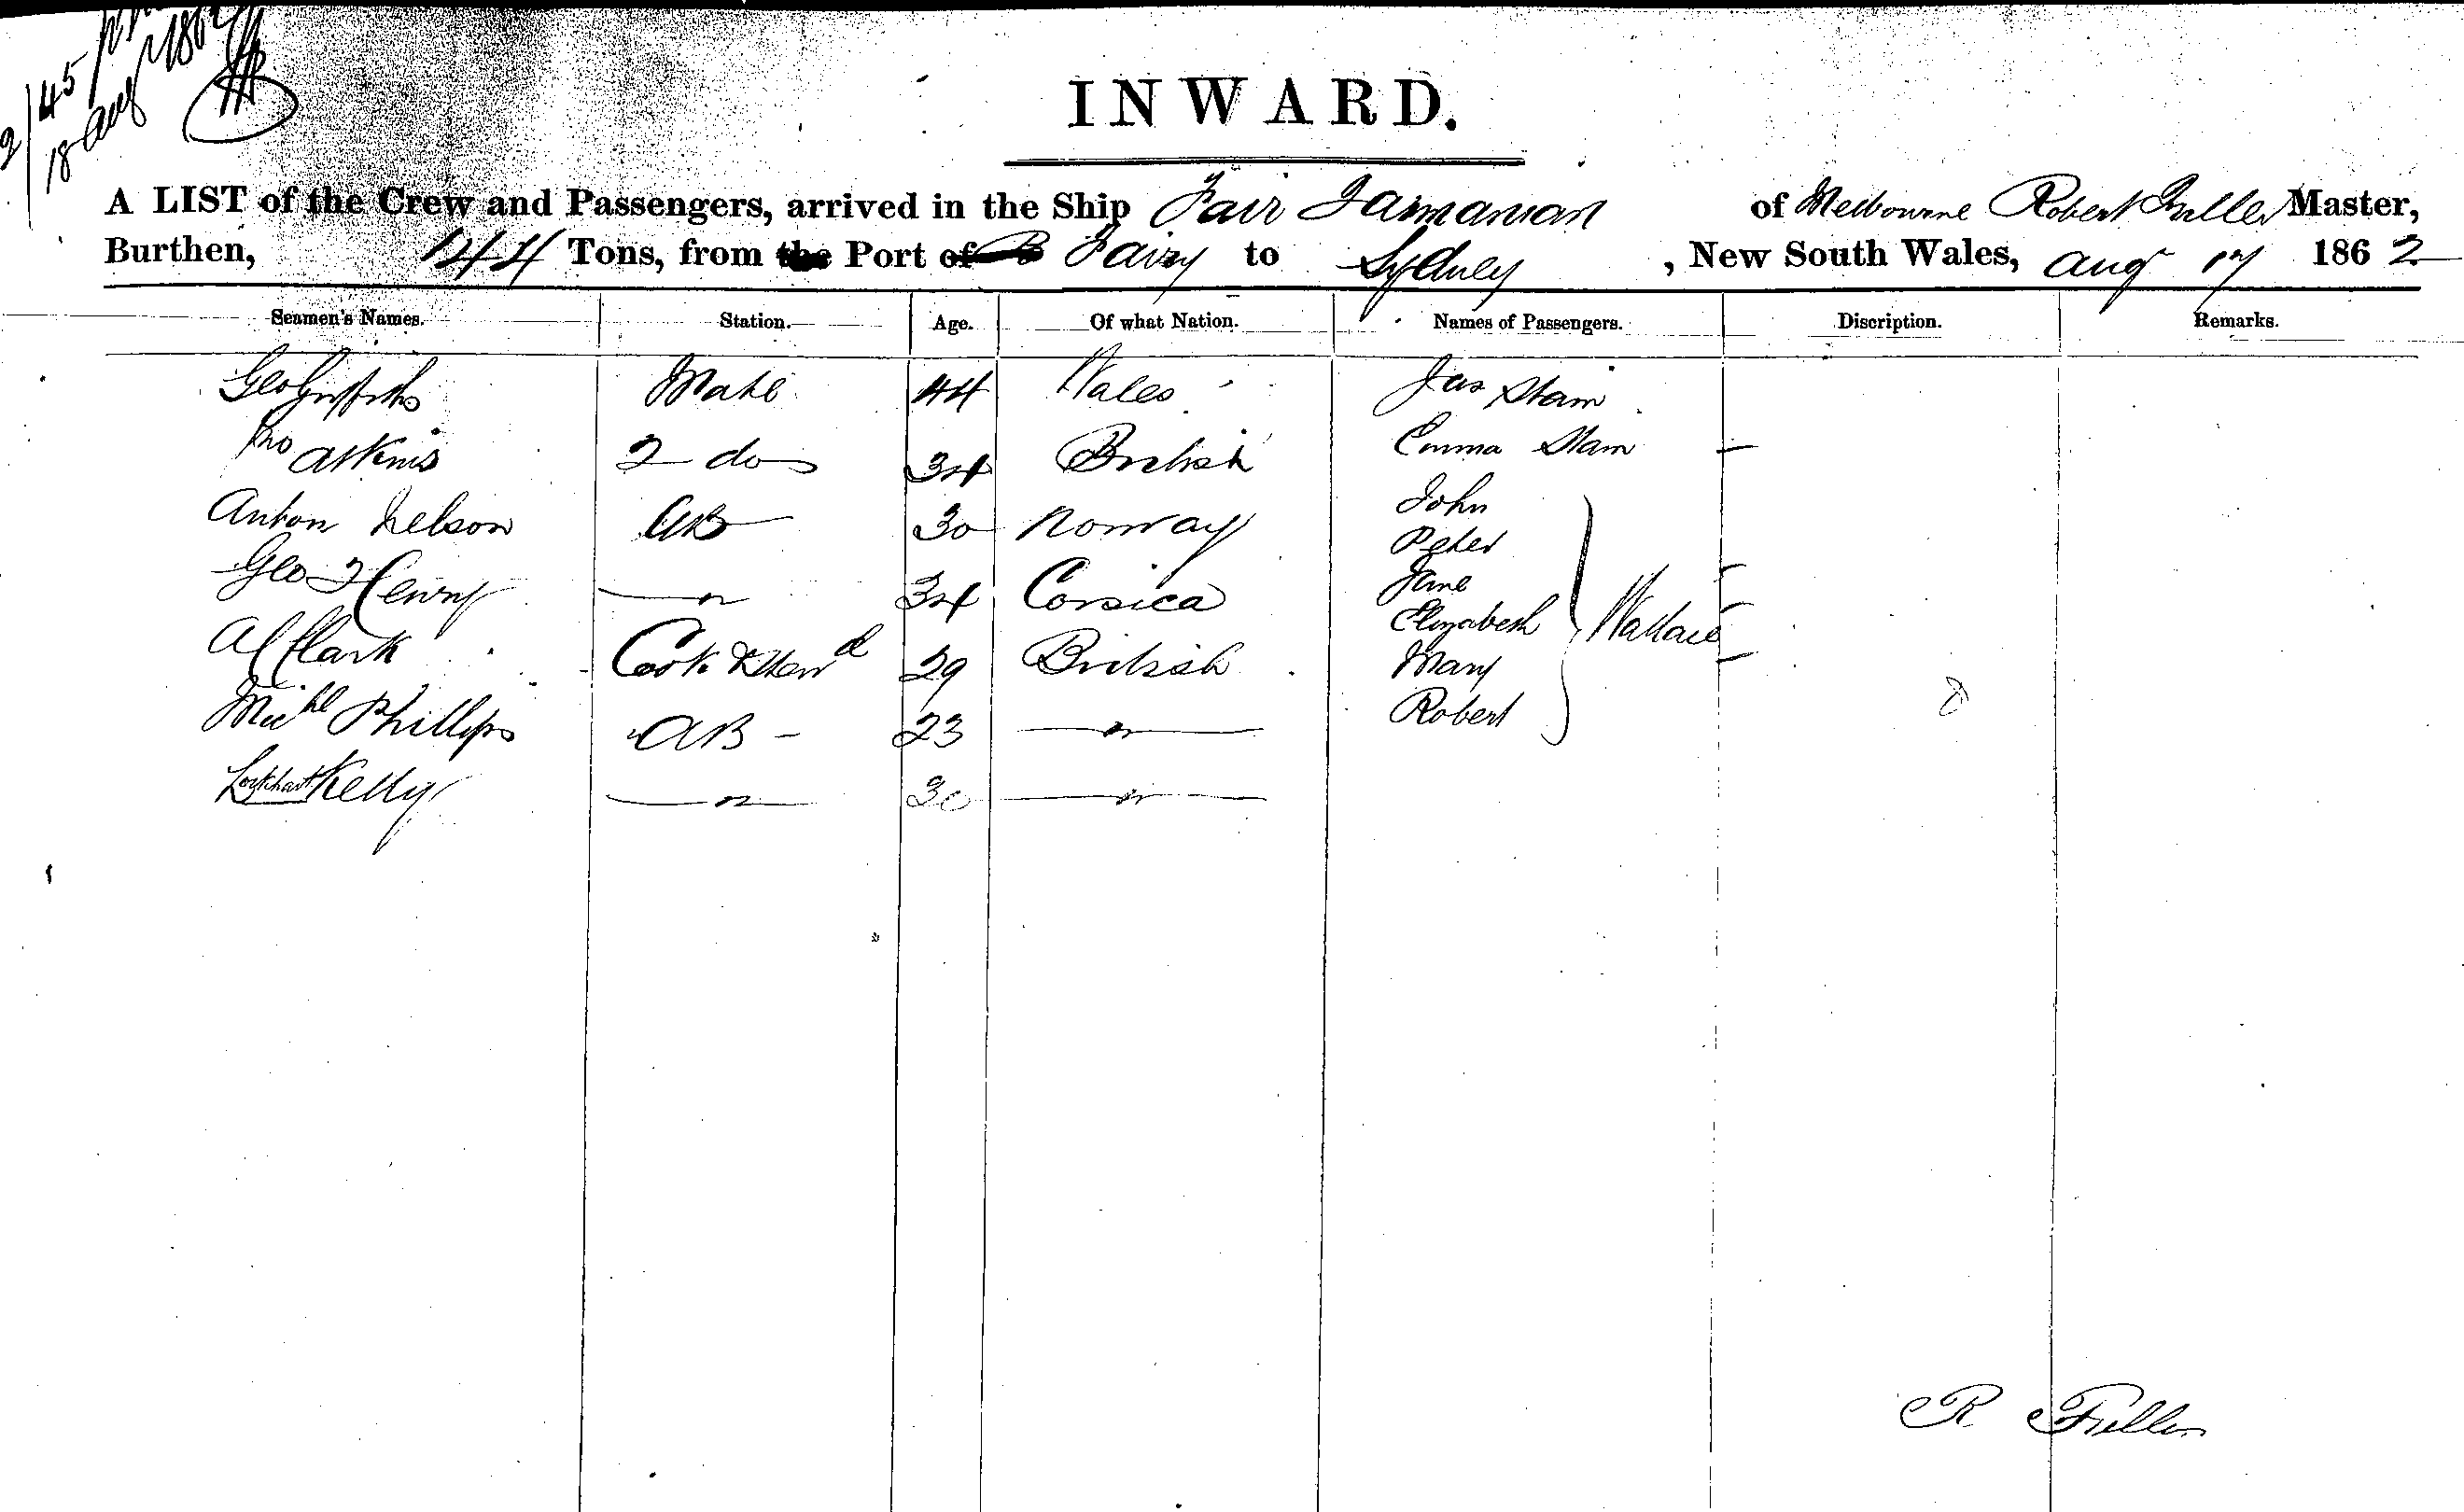 2/45 pm
18 Aug 1862
INWARD.
A LIST of the Crew and Passengers, arrived in the Ship Fair Tasmanian of Melbourne Robert Fuller Master,
Burthen, 144 Tons, from the Port of Fairy to Sydney, New South Wales, Aug 17 1862
Seamen's Names. Station. Age. Of what Nation. Names of Passengers. Discription. Remarks.
Geo Griffiths Mate 44 Wales Jas Stain
Atkins 2 do 34 British Emma Stain
Anton Nelson AB 30 Norway John
Peter
Geo Henry 〃 34 Corsica Jane
Elizabeth Wallace
Alf Clark Cook & Stewd 29 British Mary
Michl Phillips AB 23 〃 Robert
Lockhart Kelly 〃 30 〃
R Fuller